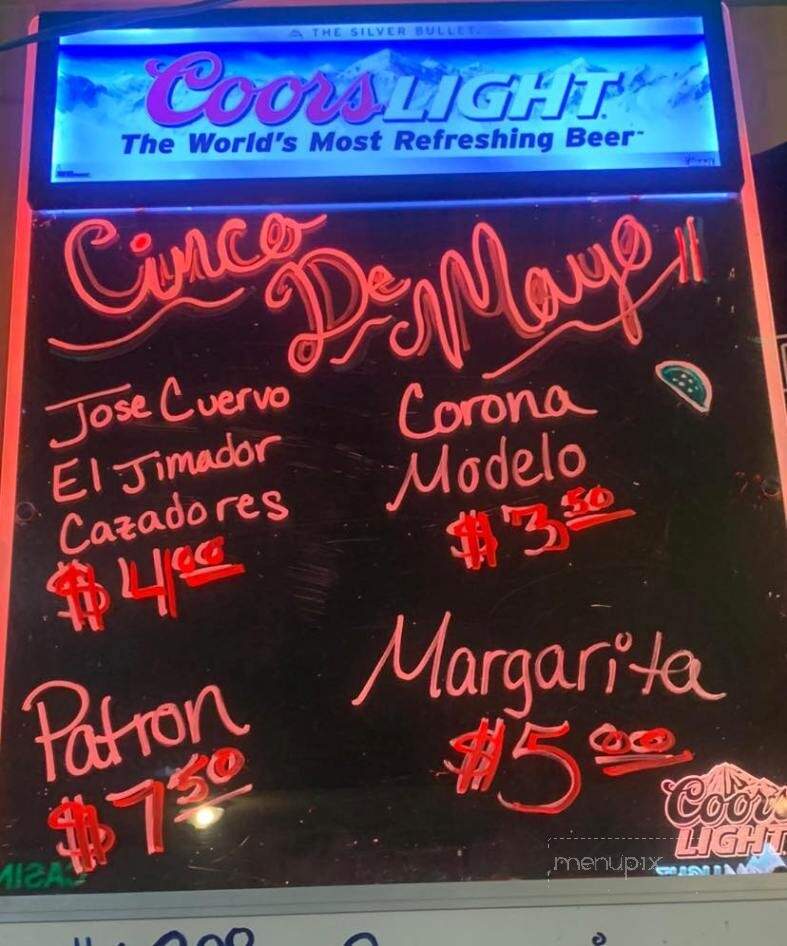 THE SILVER BULLET
Coors LIGHT
The World's Most Refreshing Beer
Cinco De Mayo!!
Jose Cuervo
El Jimador
Cazadores
$4.00
Corona
Modelo
$3.50
Patron
$7.50
Margarita
$5.00
Coors
LIGHT
menupix